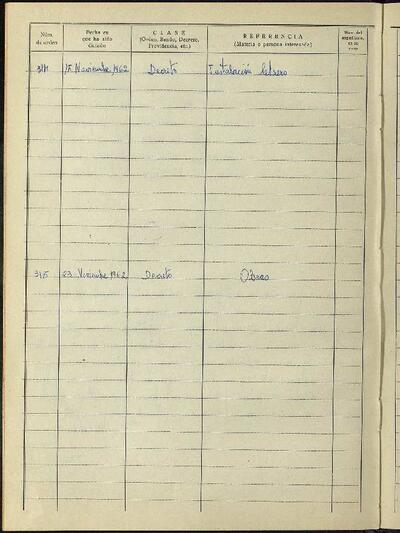 Núm. de orden
Fecha en que ha sido dictado
CLASE
(Orden, Bando, Decreto, Providencia, etc.)
REFERENCIA
(Materia o persona interesada)
Núm. del
314 15 Noviembre 1962 Decreto Instalación letrero
315 23 Noviembre 1962 Decreto Obras